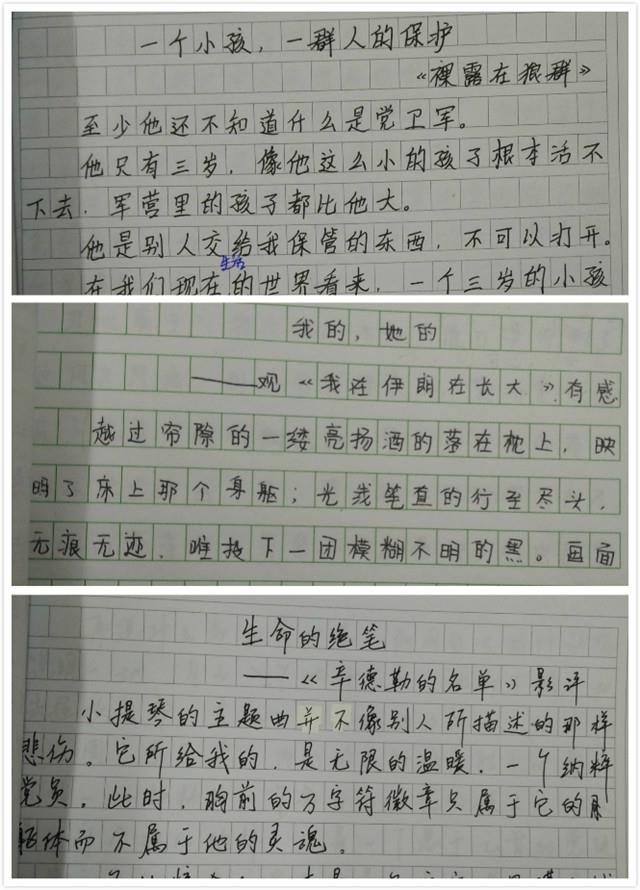 一个小孩，一群人的保护
《裸露在狼群》
至少他还不知道什么是党卫军。
他只有三岁，像他这么小的孩子根本活不
下去，军营里的孩子都比他大。
他是别人交给我保管的东西，不可以打开。
生活
在我们现在的世界看来，一个三岁的小孩
我的，她的
——观《我在伊朗在长大》有感
越过帘隙的一缕亮扬洒的落在枕上，映
明了床上那个身躯；光线笔直的行至尽头，
无痕无迹，唯投下一团模糊不明的黑。画面
生命的绝笔
——《辛德勒的名单》影评
小提琴的主题曲并不像别人所描述的那样
悲伤。它所给我的，是无限的温暖，一个纳粹
党员，此时，胸前的万字符徽章只属于它的
躯体而不属于他的灵魂。